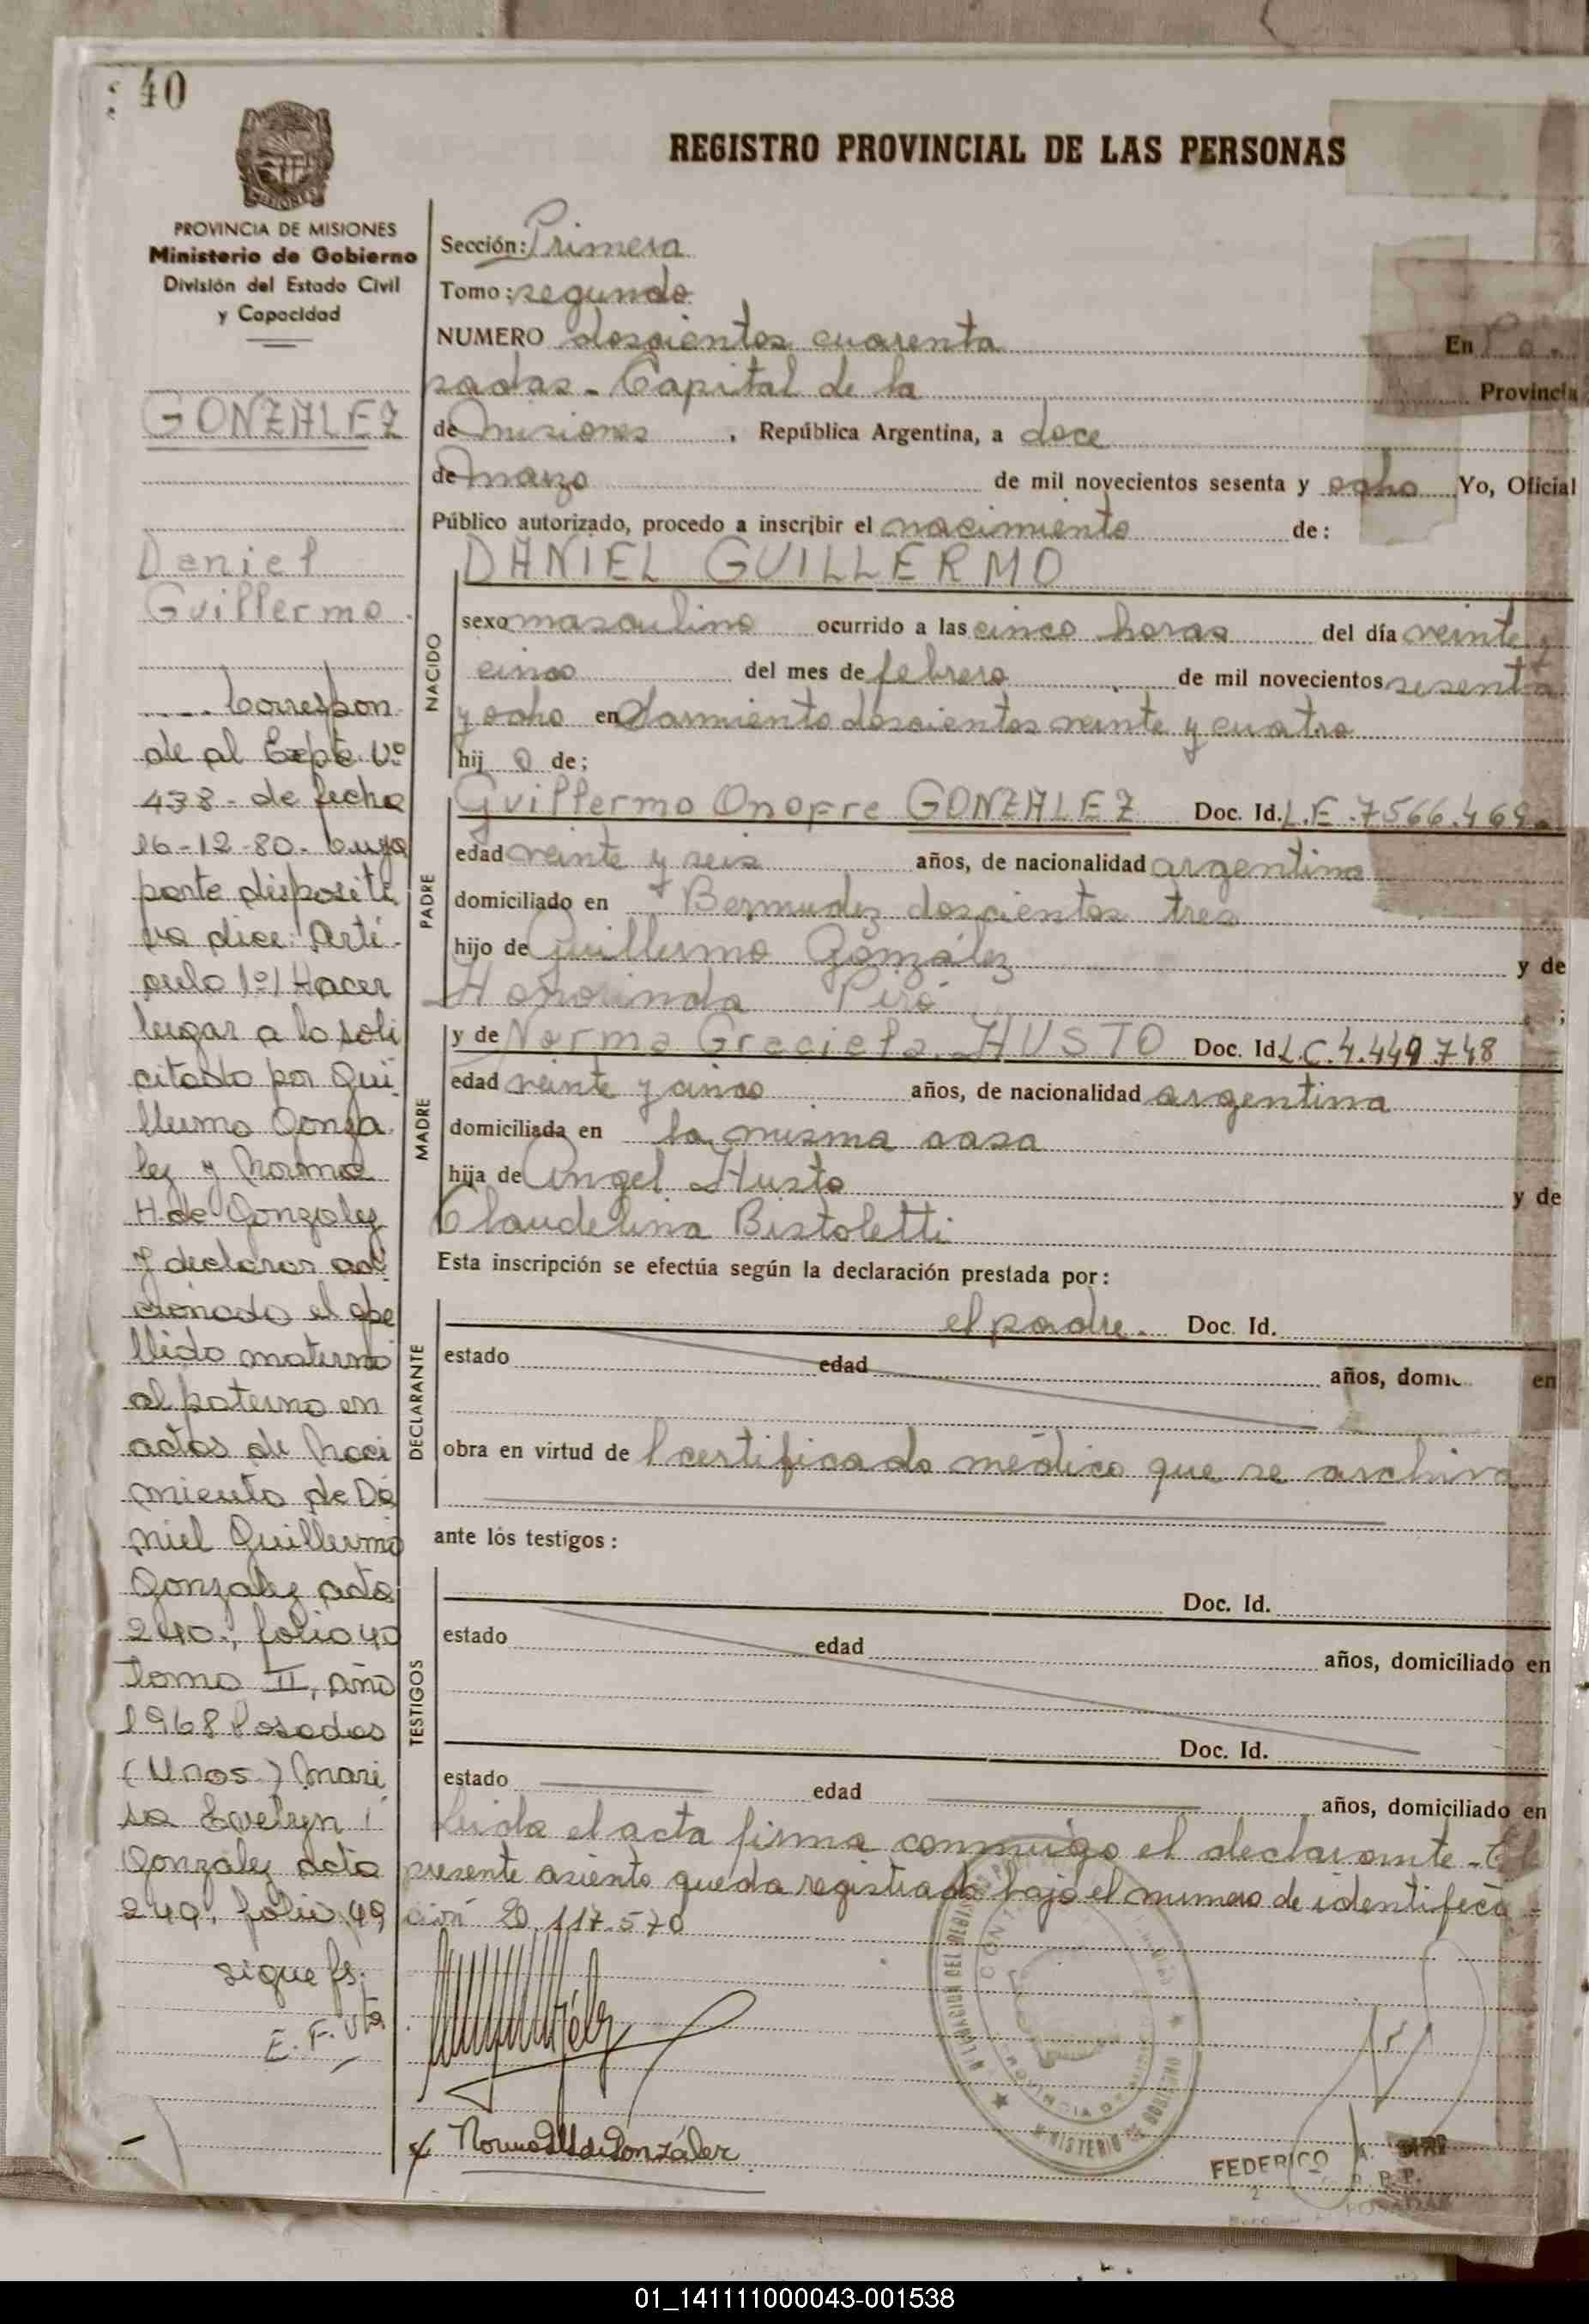 40
REGISTRO PROVINCIAL DE LAS PERSONAS
PROVINCIA DE MISIONES
Ministerio de Gobierno
División del Estado Civil
y Capacidad
GONZALEZ
Daniel
Guillermo
Correspon
de al Expte. Nº
438 - de fecha
16-12-80. Cuya
parte dispositi
va dice: Artí-
culo 1º/ Hacer
lugar a lo soli
citado por Gui
llermo Gonza
lez y Norma
H. de Gonzalez
y declarar adi
cionado el ape
llido materno
al paterno en
actas de Naci
miento de Da
niel Guillermo
Gonzalez acta
240., folio 40
Tomo II, Año
1968 Posadas
(Mnes) Mari
sa Evelyn
Gonzalez acta
249, folio 49
sigue fs.
E. F. Vta
Sección: Primera
Tomo: segundo
NUMERO doscientos cuarenta En Po-
sadas - Capital de la Provincia
de Misiones , República Argentina, a doce
de marzo de mil novecientos sesenta y ocho Yo, Oficial
Público autorizado, procedo a inscribir el nacimiento de:
DANIEL GUILLERMO
NACIDO
sexo masculino ocurrido a las cinco horas del día veinte y
cinco del mes de febrero de mil novecientos sesenta
y ocho en Sarmiento doscientos veinte y cuatro
hij o de:
PADRE
Guillermo Onofre GONZALEZ Doc. Id. L.E. 7566.469
edad veinte y seis años, de nacionalidad argentino
domiciliado en Bermudez doscientos tres
hijo de Guillermo González y de
Honorinda Piró ;
MADRE
y de Norma Graciela HUSTO Doc. Id. L.C. 4.449.748
edad veinte y cinco años, de nacionalidad argentina
domiciliada en la misma casa
hija de Angel Husto y de
Claudelina Bistoletti
Esta inscripción se efectúa según la declaración prestada por:
DECLARANTE
el padre. Doc. Id.
estado edad años, domic en
obra en virtud de l certificado médico que se archiva
ante los testigos:
TESTIGOS
Doc. Id.
estado edad años, domiciliado en
Doc. Id.
estado edad años, domiciliado en
Leida el acta firma conmigo el declarante - El
presente asiento queda registrado bajo el numero de identifica-
ción 20.117.570
Norma H de González
MINISTERIO DE GOBIERNO
FEDERICO A.
POSADAS
01_141111000043-001538